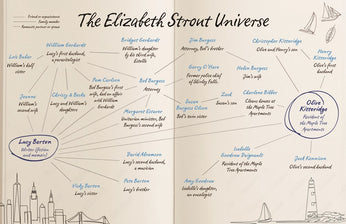 The Elizabeth Strout Universe
Friend or acquaintance
Family member
Romantic partner or spouse
Lois Bubar
William's half
sister
William Gerhardt
Lucy's first husband,
a parasitologist
Bridget Gerhardt
William's daughter
by his third wife,
Estelle
Jim Burgess
Attorney, Bob's brother
Christopher Kitteridge
Olive and Henry's son
Henry
Kitteridge
Olive's first
husband
Pam Carlson
Bob Burgess's first
wife, had an affair
with William
Gerhardt
Bob Burgess
Attorney
Gerry O'Hare
Former police chief
of Shirley Falls
Helen Burgess
Jim's wife
Joanne
William's
second wife
Chrissy & Becka
Lucy and William's
daughters
Margaret Estaver
Unitarian minister, Bob
Burgess's second wife
Susan
Burgess Olson
Bob's twin sister
Zach
Susan's son
Charlene Bibber
Cleans houses at
the Maple Tree
Apartments
Olive
Kitteridge
Resident of
the Maple Tree
Apartments
Lucy Barton
Writer (fiction
and memoir)
David Abramson
Lucy's second husband,
a musician
Isabelle
Goodrow Daignault
Resident of the Maple
Tree Apartments
Jack Kennison
Olive's second husband
Vicky Barton
Lucy's sister
Pete Barton
Lucy's brother
Amy Goodrow
Isabelle's daughter,
an oncologist